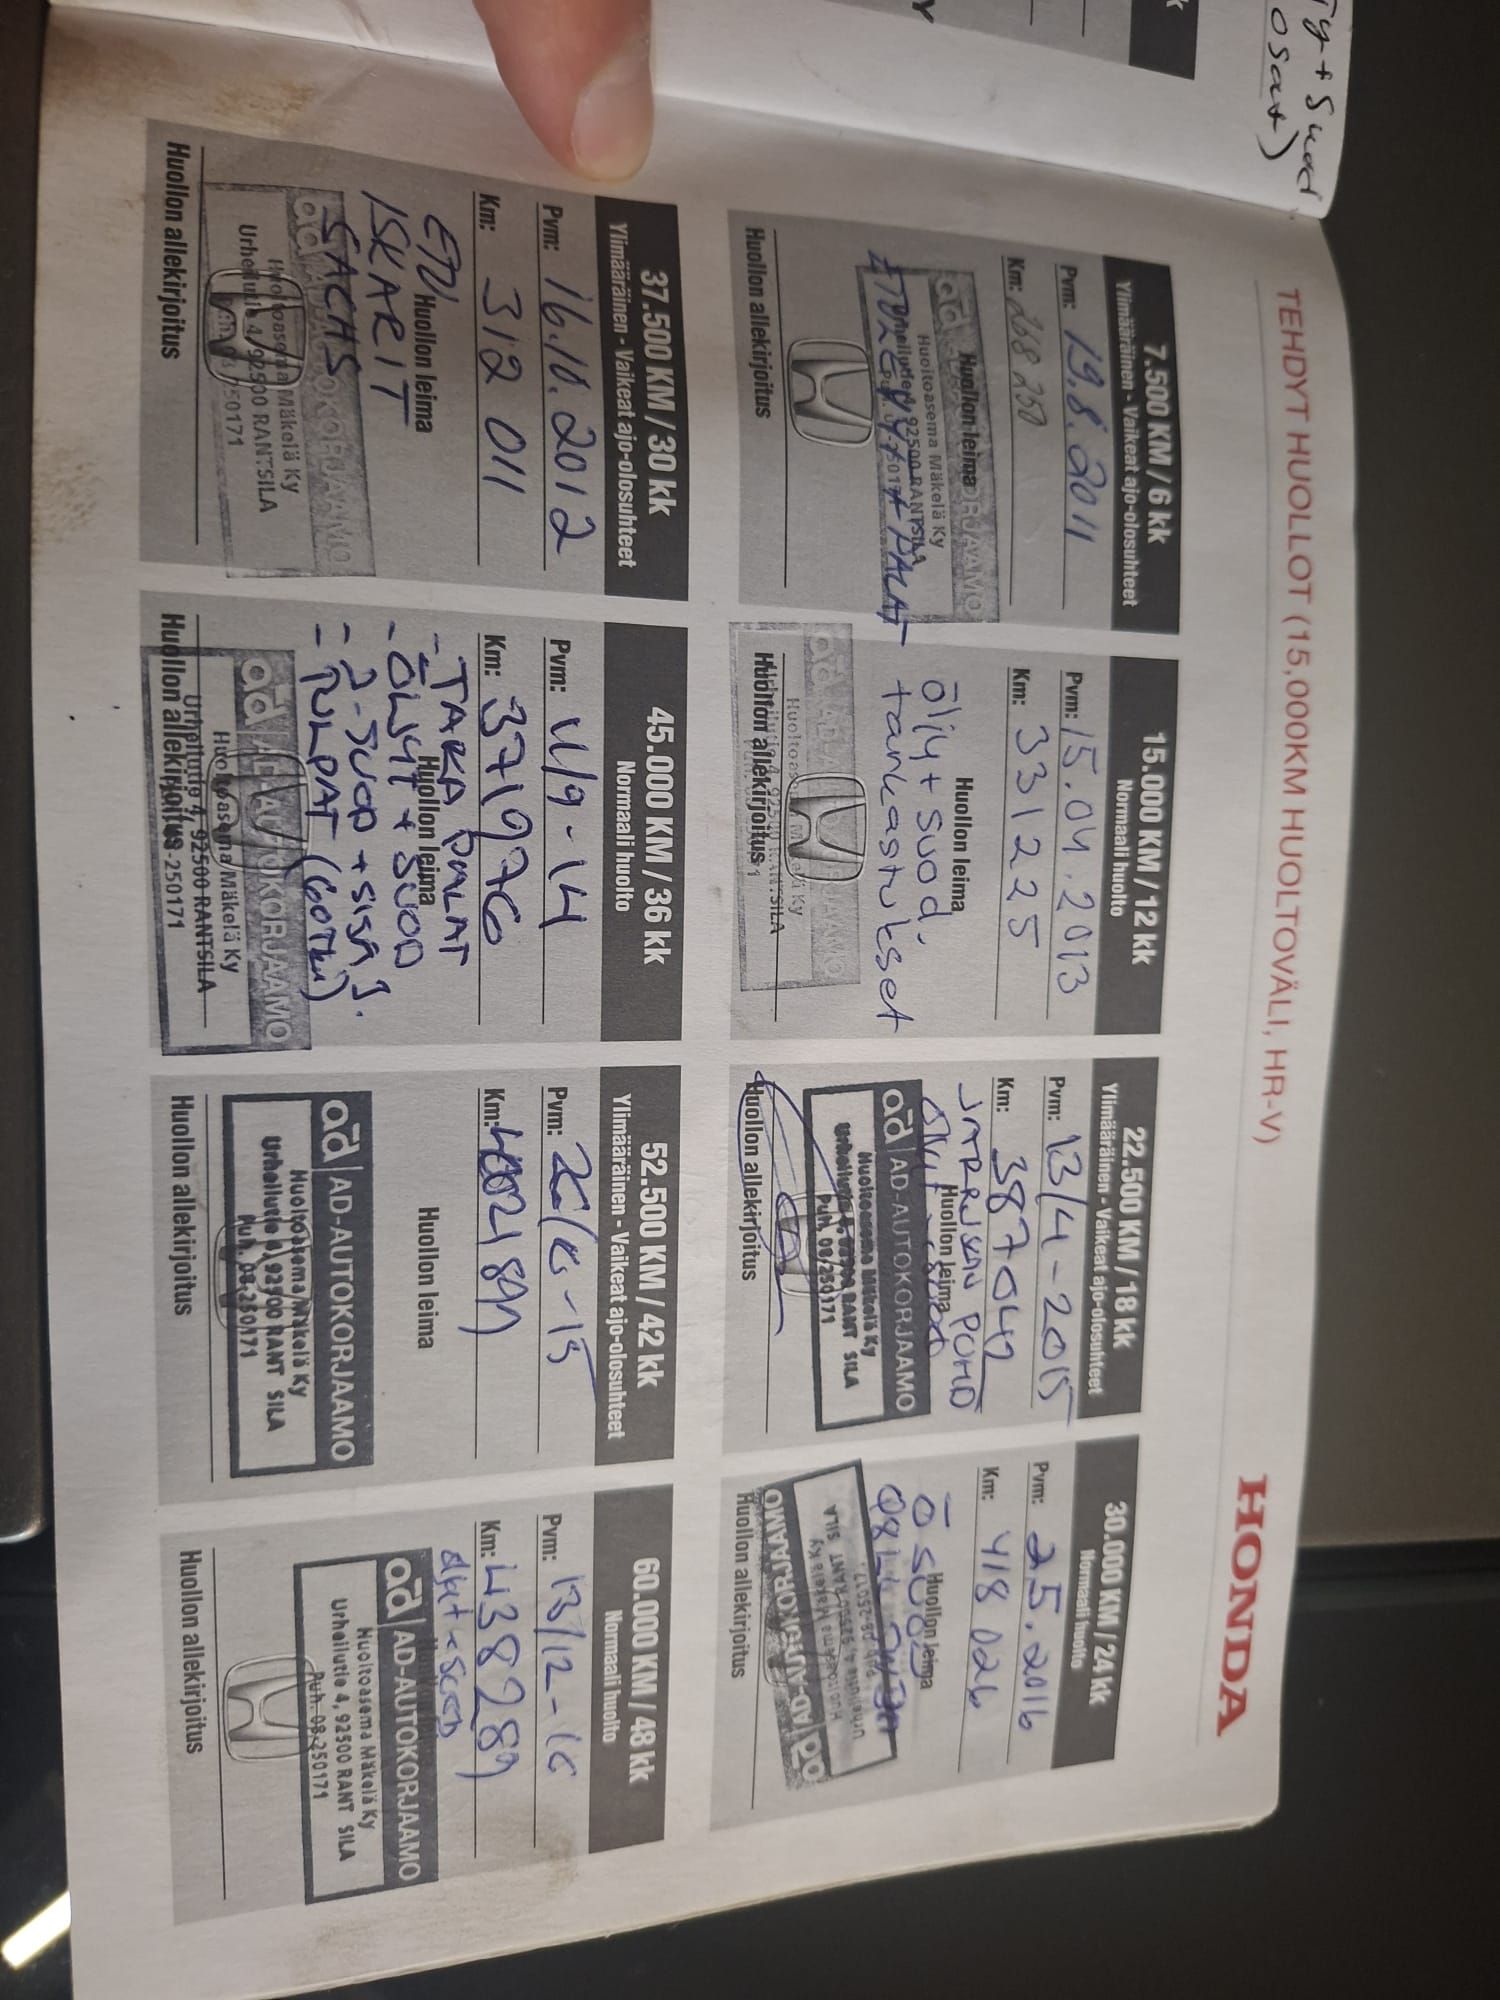 Ty + Suod.
osat)
kk
TEHDYT HUOLLOT (15,000KM HUOLTOVÄLI, HR-V)
HONDA
7.500 KM / 6 kk
Ylimääräinen - Vaikeat ajo-olosuhteet
Pvm: 19.8.2011
Km: 268 250
Huollon leima
Huoltoasema Mäkelä Ky
92500 RANTSILA
Huollon allekirjoitus
15.000 KM / 12 kk
Normaali huolto
Pvm: 15.04.2013
Km: 331225
Huollon leima
öljy + suod.
tarkastukset
Huollon allekirjoitus
22.500 KM / 18 kk
Ylimääräinen - Vaikeat ajo-olosuhteet
Pvm: 13/4-2015
Km: 387042
Huollon leima
ad AD-AUTOKORJAAMO
Huoltoasema Mäkelä Ky
Urheilutie 4, 92500 RANT SILA
Puh. 08-250171
Huollon allekirjoitus
30.000 KM / 24 kk
Normaali huolto
Pvm: 25.2016
Km: 418 026
Huollon leima
ad AD-AUTOKORJAAMO
Huoltoasema Mäkelä Ky
Urheilutie 4, 92500 RANT SILA
Huollon allekirjoitus
37.500 KM / 30 kk
Ylimääräinen - Vaikeat ajo-olosuhteet
Pvm: 16.10.2012
Km: 312 011
Huollon leima
ETU
ISKARIT
SACHS
ad AD-AUTOKORJAAMO
Huoltoasema Mäkelä Ky
Urheilutie 4, 92500 RANTSILA
Huollon allekirjoitus
45.000 KM / 36 kk
Normaali huolto
Pvm: 4/9-14
Km: 371976
- TAKA PALAT
Huollon leima
- ÖLJYT + SUOD
- 2-SUOD + SISÄ J.
- TULPAT (60TKM)
ad AD-AUTOKORJAAMO
Huoltoasema Mäkelä Ky
Urheilutie 4, 92500 RANTSILA
08-250171
Huollon allekirjoitus
52.500 KM / 42 kk
Ylimääräinen - Vaikeat ajo-olosuhteet
Pvm:
Km:
Huollon leima
ad AD-AUTOKORJAAMO
Huoltoasema Mäkelä Ky
Urheilutie 4, 92500 RANT SILA
Puh. 08-250171
Huollon allekirjoitus
60.000 KM / 48 kk
Normaali huolto
Pvm: 13/12-16
Km: 438289
ad AD-AUTOKORJAAMO
Huoltoasema Mäkelä Ky
Urheilutie 4, 92500 RANT SILA
Puh. 08-250171
Huollon allekirjoitus